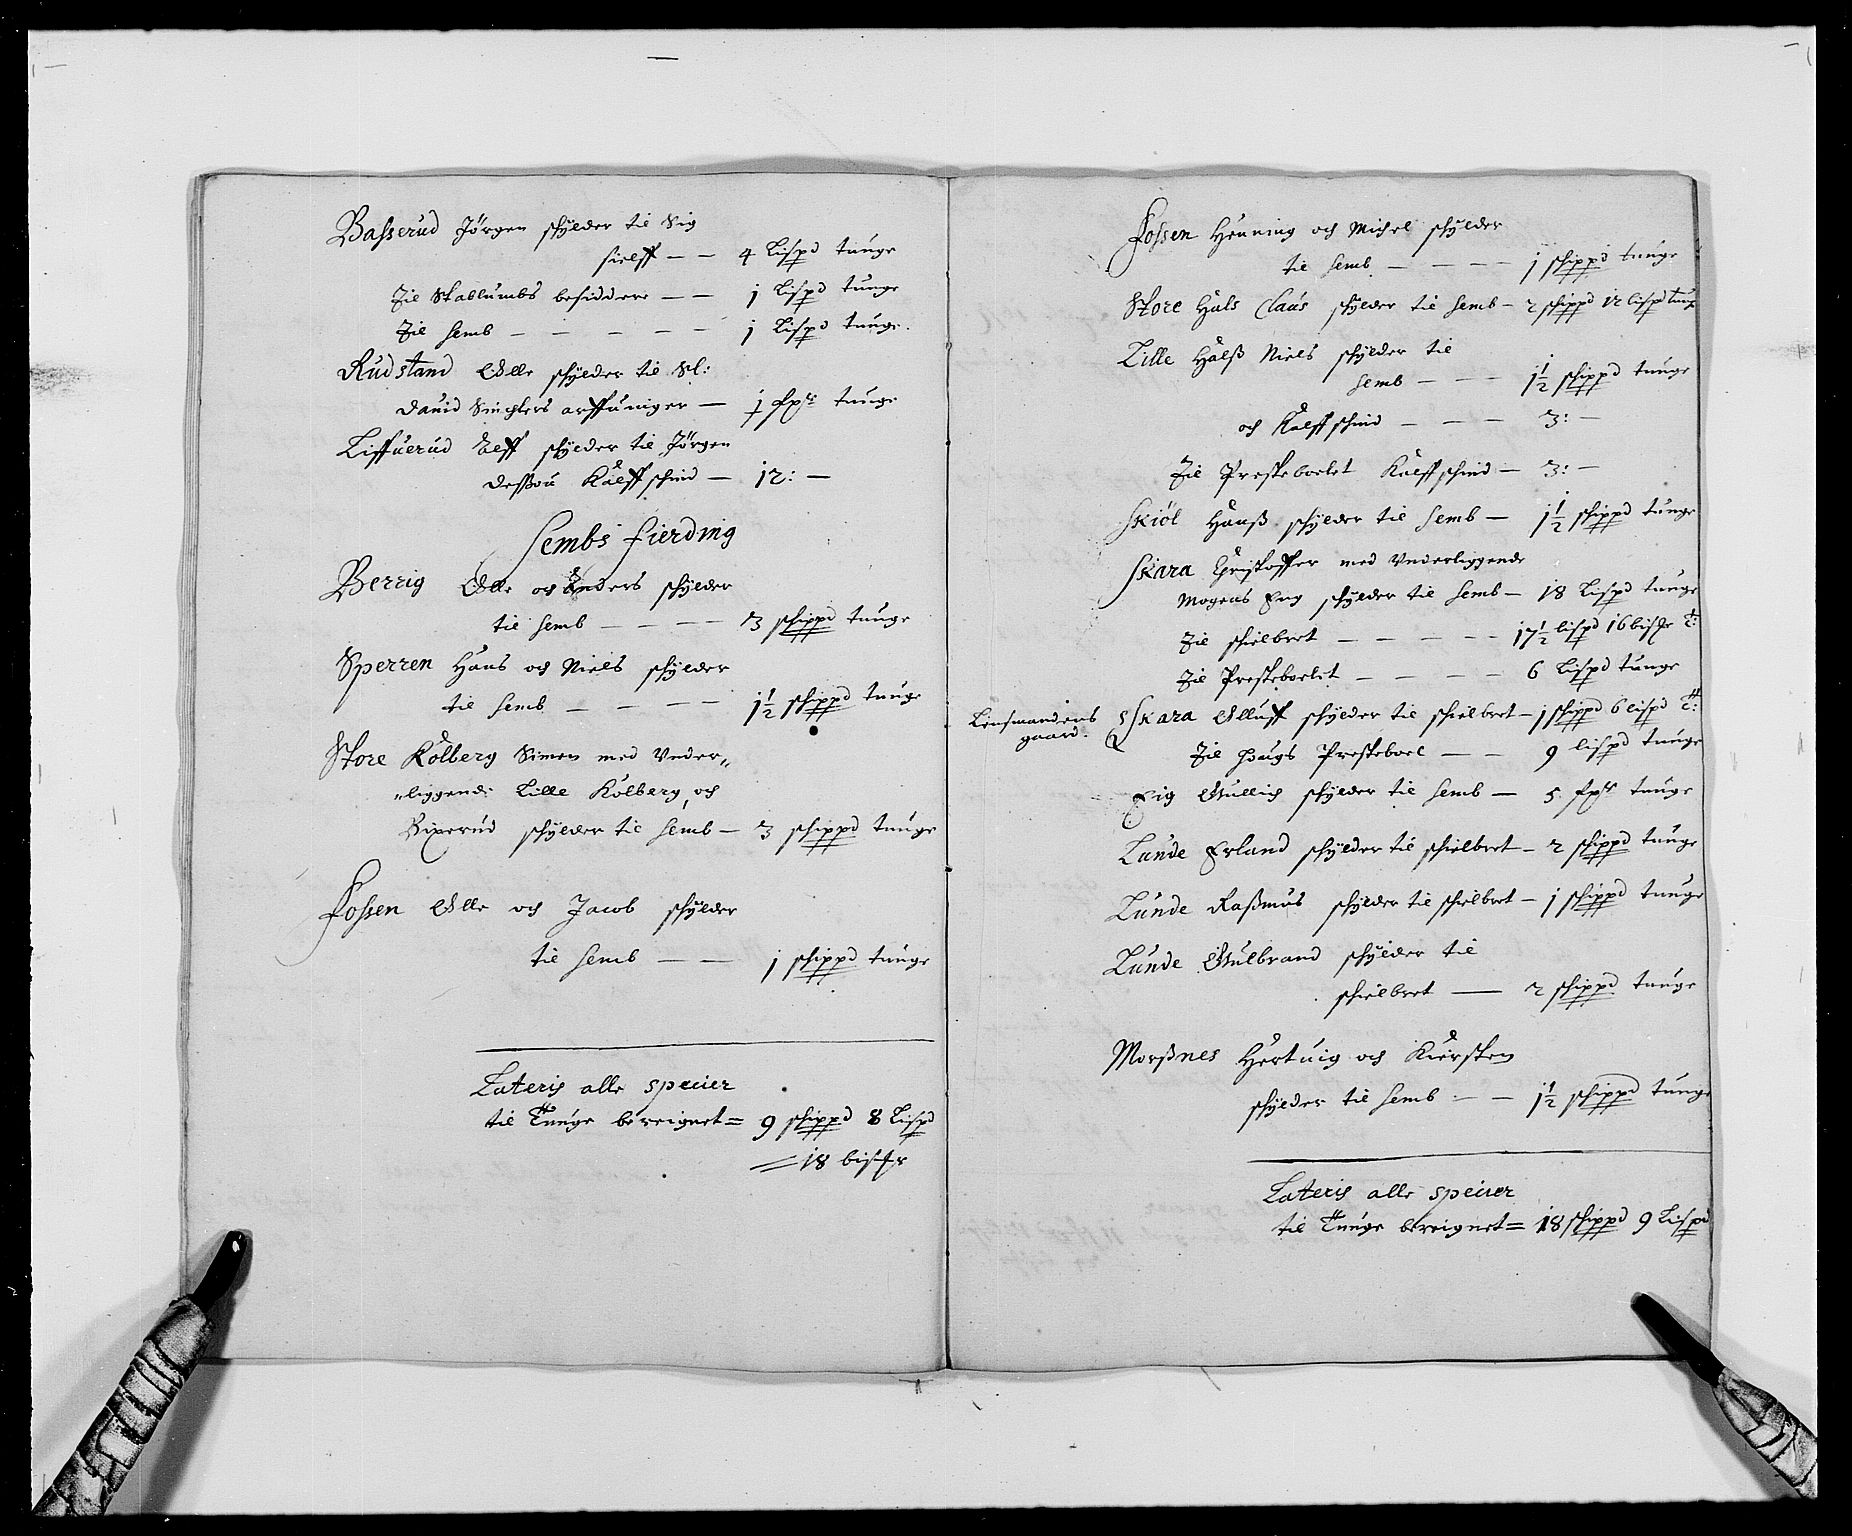 Basserud Jörgen schylder til Sig
sielff — — 4 Lispd tunge
Til Stablumbs besiddere — — 1 Lispd tunge
Til Semb — — — — — 1 Lispd tunge.
Rudstand Olle schylder til Sl:
Dauid Sinchlers arffuinger — 1 fxr tunge
Liffuerud Leff schylder til Jörgen
Kalffschind — 12: —
Sembs fierding
Berrig Olle och Anders schylder
til Semb — — — — 3 schippd tunge
Sperren Hans och Niels schylder
til Semb — — — — 1½ schippd tunge
Store Kolberg Simen med Vnder„
„liggende Lille Kolberg, och
Vixerud schylder til Semb — 3 schippd tunge
Fossen Olle och Jacob schylder
til Semb — — 1 schippd tunge
Lateris alle specier
til Tunge bereignet = 9 schippd 8 Lispd
= 18 bismr
Fossen Henning och Michel schylder
til Semb — — — — 1 schippd tunge
Store Hals Claus schylder til Semb — 2 schippd 12 lispd tung
Lille Halß Niels schylder til
Semb — — — 1½ schippd tunge
och Kalffschind — — — 3: —
Til Presteboelet Kalffschind — 3: —
Skiöl Hanß schylder til Semb — 1½ schippd tunge
Skara Christoffer med Vnderliggende
Mogens Eng schylder til Semb — 18 Lispd tunge
Til schielbret — — — — — 17½ lispd 16 bismr T:
Til Presteboelet — — — — 6 Lispd tunge
Lensmandens gaard. Skara Olluff schylder til schielbret — 1 schippd 6 lispd T:
Til Haugs Presteboel — — 9 lispd tunge
Eig Gullich schylder til Semb — 5 fxr tunge
Lunde Erland schylder til schielbret — 2 schippd tunge
Lunde Raßmus schylder til schielbret — 1 schippd tunge
Lunde Gulbrand schylder til
schielbret — 2 schippd tunge
Morßnes Hertuig och Kiersten
schylder til Semb — — 1½ schippd tunge
Lateris alle specier
til Tunge bereignet = 18 schippd 9 Lispd